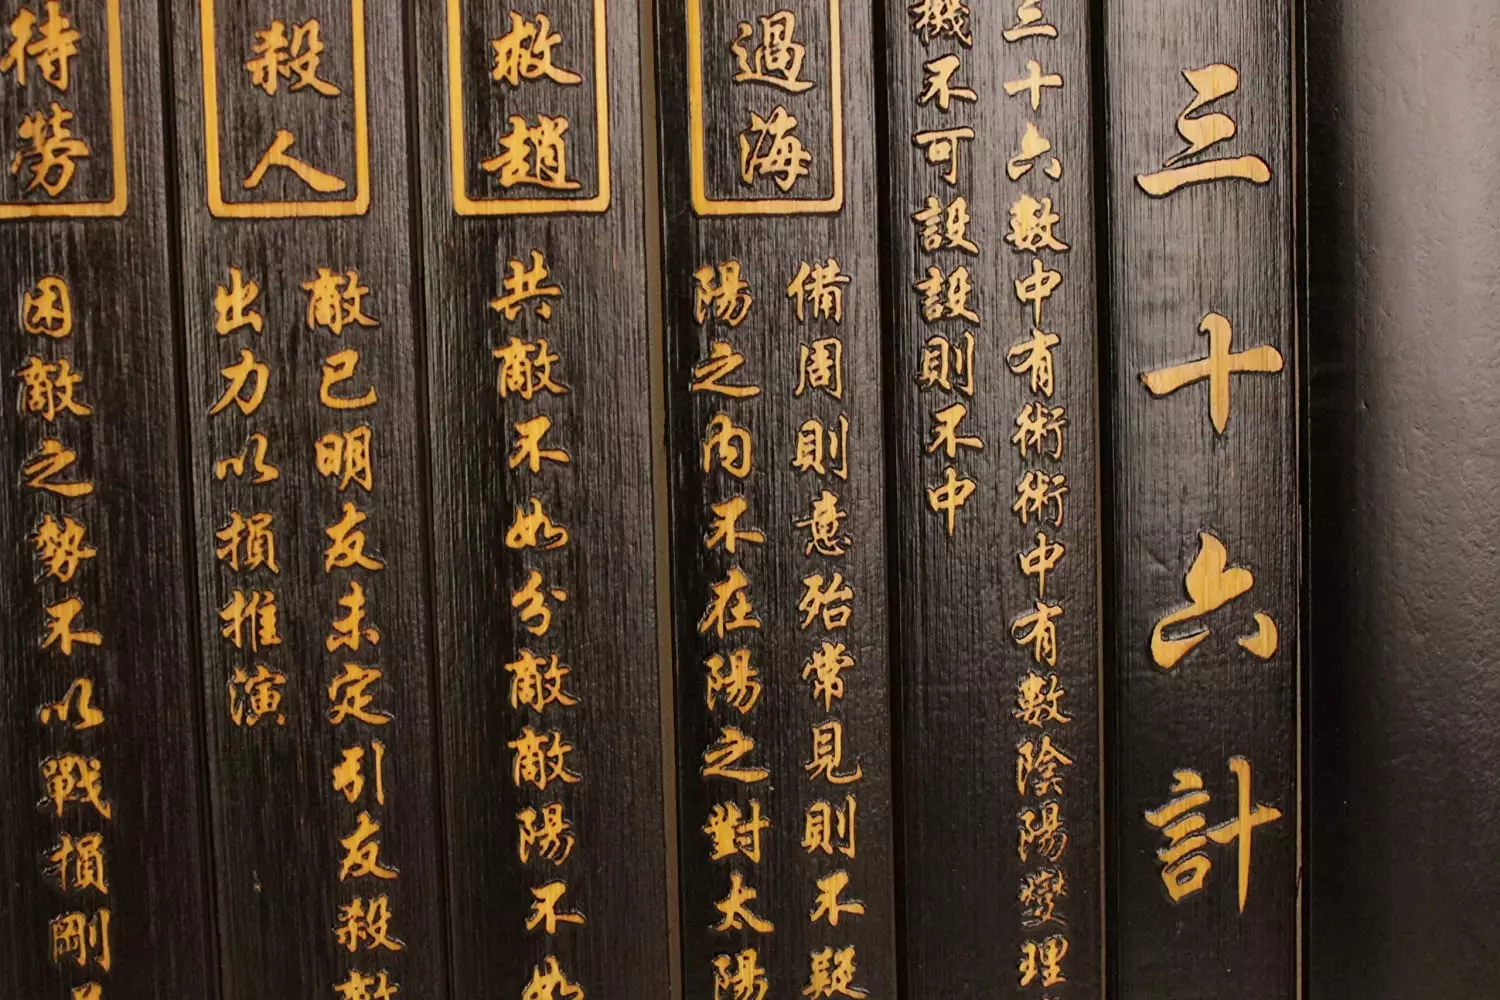 三十六計
三十六數中有術術中有數陰陽燮理
機不可設設則不中
過海
備周則意殆常見則不疑
陽之內不在陽之對太陽
救趙
共敵不如分敵敵陽不如
殺人
敵已明友未定引友殺敵
出力以損推演
待勞
困敵之勢不以戰損剛